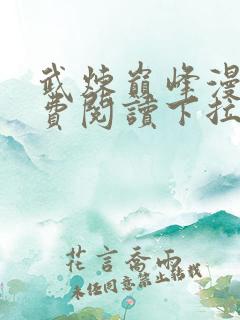 武煉巔峰漫
費閱讀下拉
花言喬雨
未经同意禁止转载